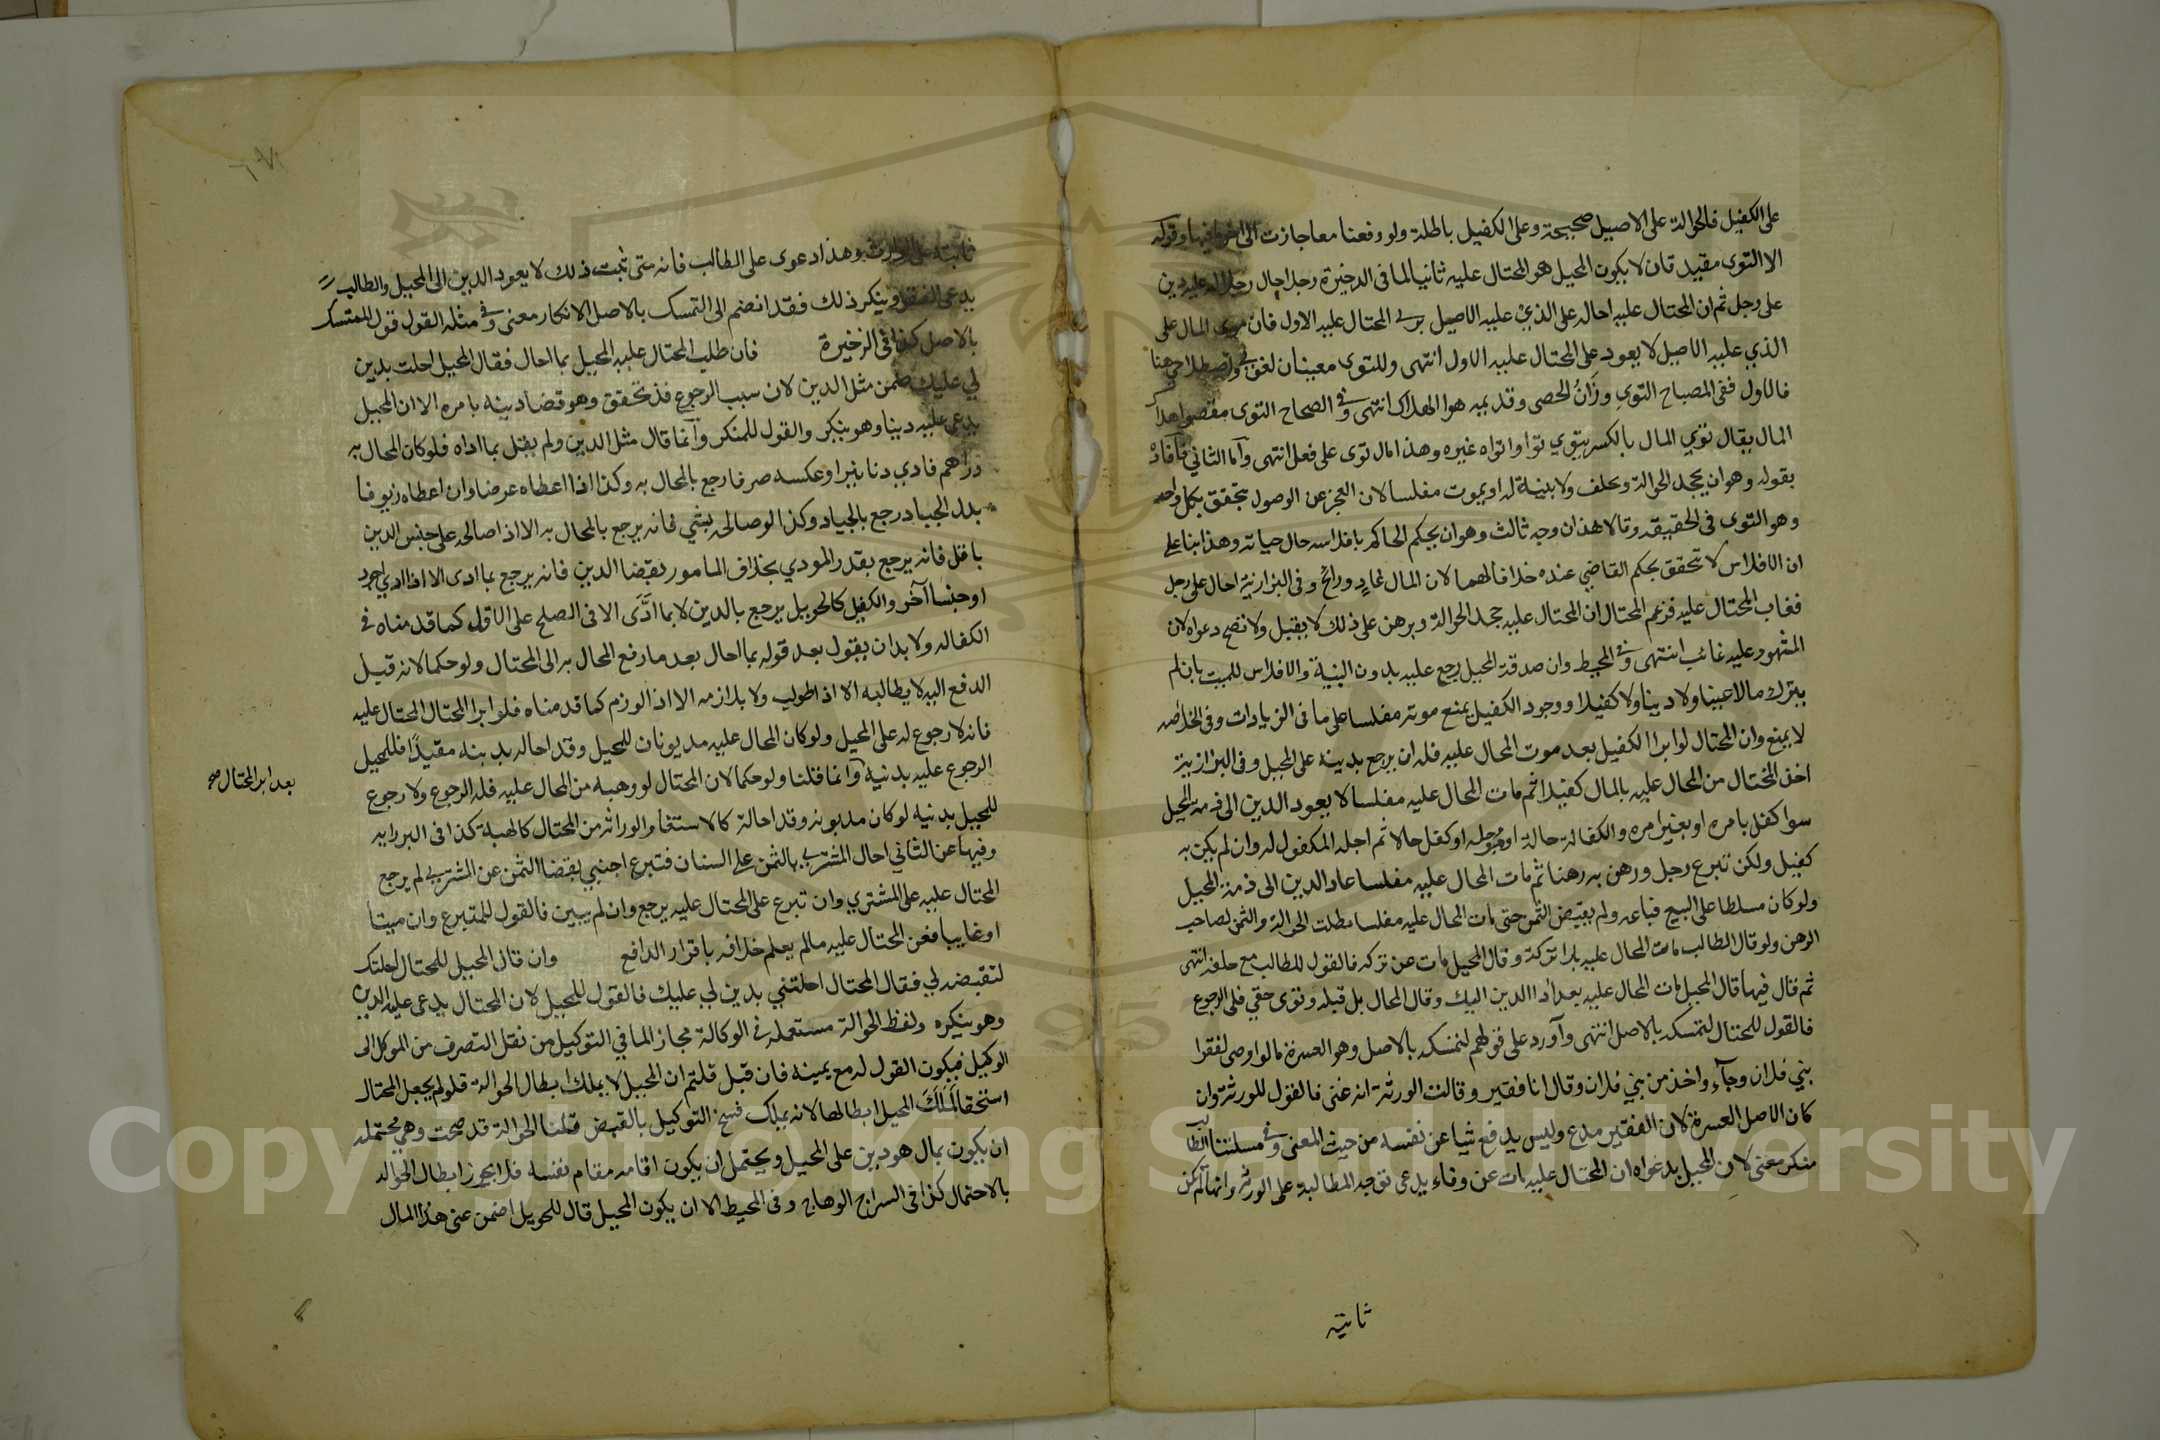 على الكفيل فالحوالة على الاصيل صحيحة وعلى الكفيل باطلة ولو وقعتا معا جازت الى اخر ما فيها وقوله
الا التوى مقيد بان لا يكون المحيل هو المحتال عليه ثانيا لما في الذخيرة رجل احال رجلا له عليه دين
على رجل ثم ان المحتال عليه احاله على الذي عليه الاصيل برئ المحتال عليه الاول فان توى المال على
الذي عليه الاصيل لا يعود على المحتال عليه الاول انتهى وللتوى معنيان لغوي واصطلاحي هنا
فالاول ففي المصباح التوى وزان الحصى وقد يمد هو الهلاك انتهى وفي الصحاح التوى مقصور هلاك
المال يقال توي المال بالكسر يتوي توا واتواه غيره وهذا مال تو على فعل انتهى واما الثاني فافاده
بقوله وهو ان يجحد الحوالة ويحلف ولا بينة له او يموت مفلسا لان العجز عن الوصول يتحقق بكل واحد
وهو التوى في الحقيقة وقالا هذان وجه ثالث وهو ان يحكم الحاكم بافلاسه حال حياته وهذا بنا على
ان الافلاس لا يتحقق بحكم القاضي عنده خلافا لهما لان المال غاد ورائح وفي البزازية احال على رجل
فغاب المحتال عليه فزعم المحتال ان المحتال عليه جحد الحوالة وبرهن على ذلك لا يقبل ولا تصح دعواه لان
المشهود عليه غائب انتهى وفي المحيط وان صدقه المحيل رجع عليه بدون البينة والافلاس للميت بان لم
يترك مالا عينا ولا دينا ولا كفيلا ووجود الكفيل يمنع موته مفلسا على ما في الزيادات وفي الخلاصة
لا يمنع وان المحتال لو ابرا الكفيل بعد موت المحال عليه فله ان يرجع بدينه على المحيل وفي البزازية
اخذ المحتال من المحال عليه بالمال كفيلا ثم مات المحال عليه مفلسا لا يعود الدين الى ذمة المحيل
سوا كفل بامره او بغير امره والكفالة حالة او مؤجلة او كفل حالا ثم اجله المكفول له وان لم يكن به
كفيل ولكن تبرع رجل ورهن به رهنا ثم مات المحال عليه مفلسا عاد الدين الى ذمة المحيل
ولو كان مسلطا على البيع فباعه ولم يقبض الثمن حتى مات المحال عليه مفلسا بطلت الحوالة والثمن لصاحب
الرهن ولو قال الطالب مات المحال عليه بلا تركة وقال المحيل مات عن تركه فالقول للطالب مع حلفه انتهى
ثم قال فيها قال المحيل مات المحال عليه بعد ادا الدين اليك وقال المحال بل قبله وتوى حقي فلي الرجوع
فالقول للمحتال لتمسكه بالاصل انتهى وآورد على قولهم لتمسكه بالاصل وهو العسرة ما لو اوصى لفقرا
بني فلان وجآء واخذ من بني فلان وقال انا فقير وقالت الورثة انه غنى فالقول للورثة وان
كان الاصل العسرة لان الفقير مدع وليس يدفع شيا عن نفسه من حيث المعنى وفي مسئلتنا الطالب
منكر معنى لان المحيل بدعواه ان المحتال عليه مات عن وفاء يدعى توجه المطالبة على الورثة وانها لم تكن
ثابتة
ثابتة على الوارث وهذا دعوى على الطالب فانه متى ثبت ذلك لا يعود الدين الى المحيل والطالب
يدعي الفقر وينكر ذلك فقد انضم الى التمسك بالاصل الانكار معنى وفي مثله القول قول المتمسك
بالاصل كذا في الذخيرة فان طلب المحتال عليه المحيل بما احال فقال المحيل احلت بدين
لي عليك ضمن مثل الدين لان سبب الرجوع قد تحقق وهو قضا دينه بامره الا ان المحيل
يدعي عليه دينا وهو ينكر والقول للمنكر وآنما قال مثل الدين ولم يقل بما اداه فلو كان المحال به
دراهم فادى دنانير او عكسه صرفا رجع بالمحال به وكذا اذا اعطاه عرضا وان اعطاه زيوفا
بدل الجياد رجع بالجياد وكذا لو صالحه بشي فانه يرجع بالمحال به الا اذا صالحه على جنس الدين
باقل فانه يرجع بقدر المودي بخلاف المامور بقضا الدين فانه يرجع بما ادى الا اذا ادي اجود
او جنسا آخر والكفيل كالحويل يرجع بالدين لا بما ادَّى الا في الصلح على الاقل كما قدمناه في
الكفاله ولا بد ان يقول بعد قوله بما احال بعد ما دفع المحال به الى المحتال ولو حكما لانه قبل
الدفع اليه لا يطالبه الا اذا طولب ولا يلازمه الا اذا لوزم كما قدمناه فلو ابرا المحتال المحتال عليه
فانه لا رجوع له على المحيل ولو كان المحال عليه مديونا للمحيل وقد احاله بدينه مقيدًا فللمحيل
الرجوع عليه بدينه وآنما قلنا ولو حكما لان المحتال لو وهبه من المحال عليه فله الرجوع ولا رجوع
للمحيل بدينه لو كان مديونه وقد احاله كالاستيفا والوراثه من المحتال كالهبة كذا في البزازيه
وفيها عن الثاني احال المشتري بالثمن على انسان فتبرع اجنبي بقضا الثمن عن المشتري لم يرجع
المحتال عليه على المشتري وان تبرع على المحتال عليه يرجع وان لم يبين فالقول للمتبرع وان ميتا
او غايبا فعن المحتال عليه ما لم يعلم خلافه باقرار الدافع وان قال المحيل للمحتال احلتك
لتقبضه لي فقال المحتال احلتني بدين لي عليك فالقول للمحيل لان المحتال يدعى عليه الدين
وهو ينكره ولفظ الحوالة مستعملة في الوكالة مجاز لما في التوكيل من نقل التصرف من الموكل الى
الوكيل فيكون القول له مع يمينه فان قبل قلتم ان المحيل لا يملك ابطال الحوالة قلو لم يجعل المحتال
استحقا لَمَلَكَ المحيل ابطالها لانه يملك فسخ التوكيل بالقبض قلنا الحوالة قد صحت وهي محتملة
ان يكون بمال هو دين على المحيل ويحتمل ان يكون اقامه مقام نفسه فلا يجوز ابطال الحواله
بالاحتمال كذا في السراج الوهاج وفى المحيط الا ان يكون المحيل قال للحويل اضمن عنى هذا المال
بعد ابرا المحتال صح